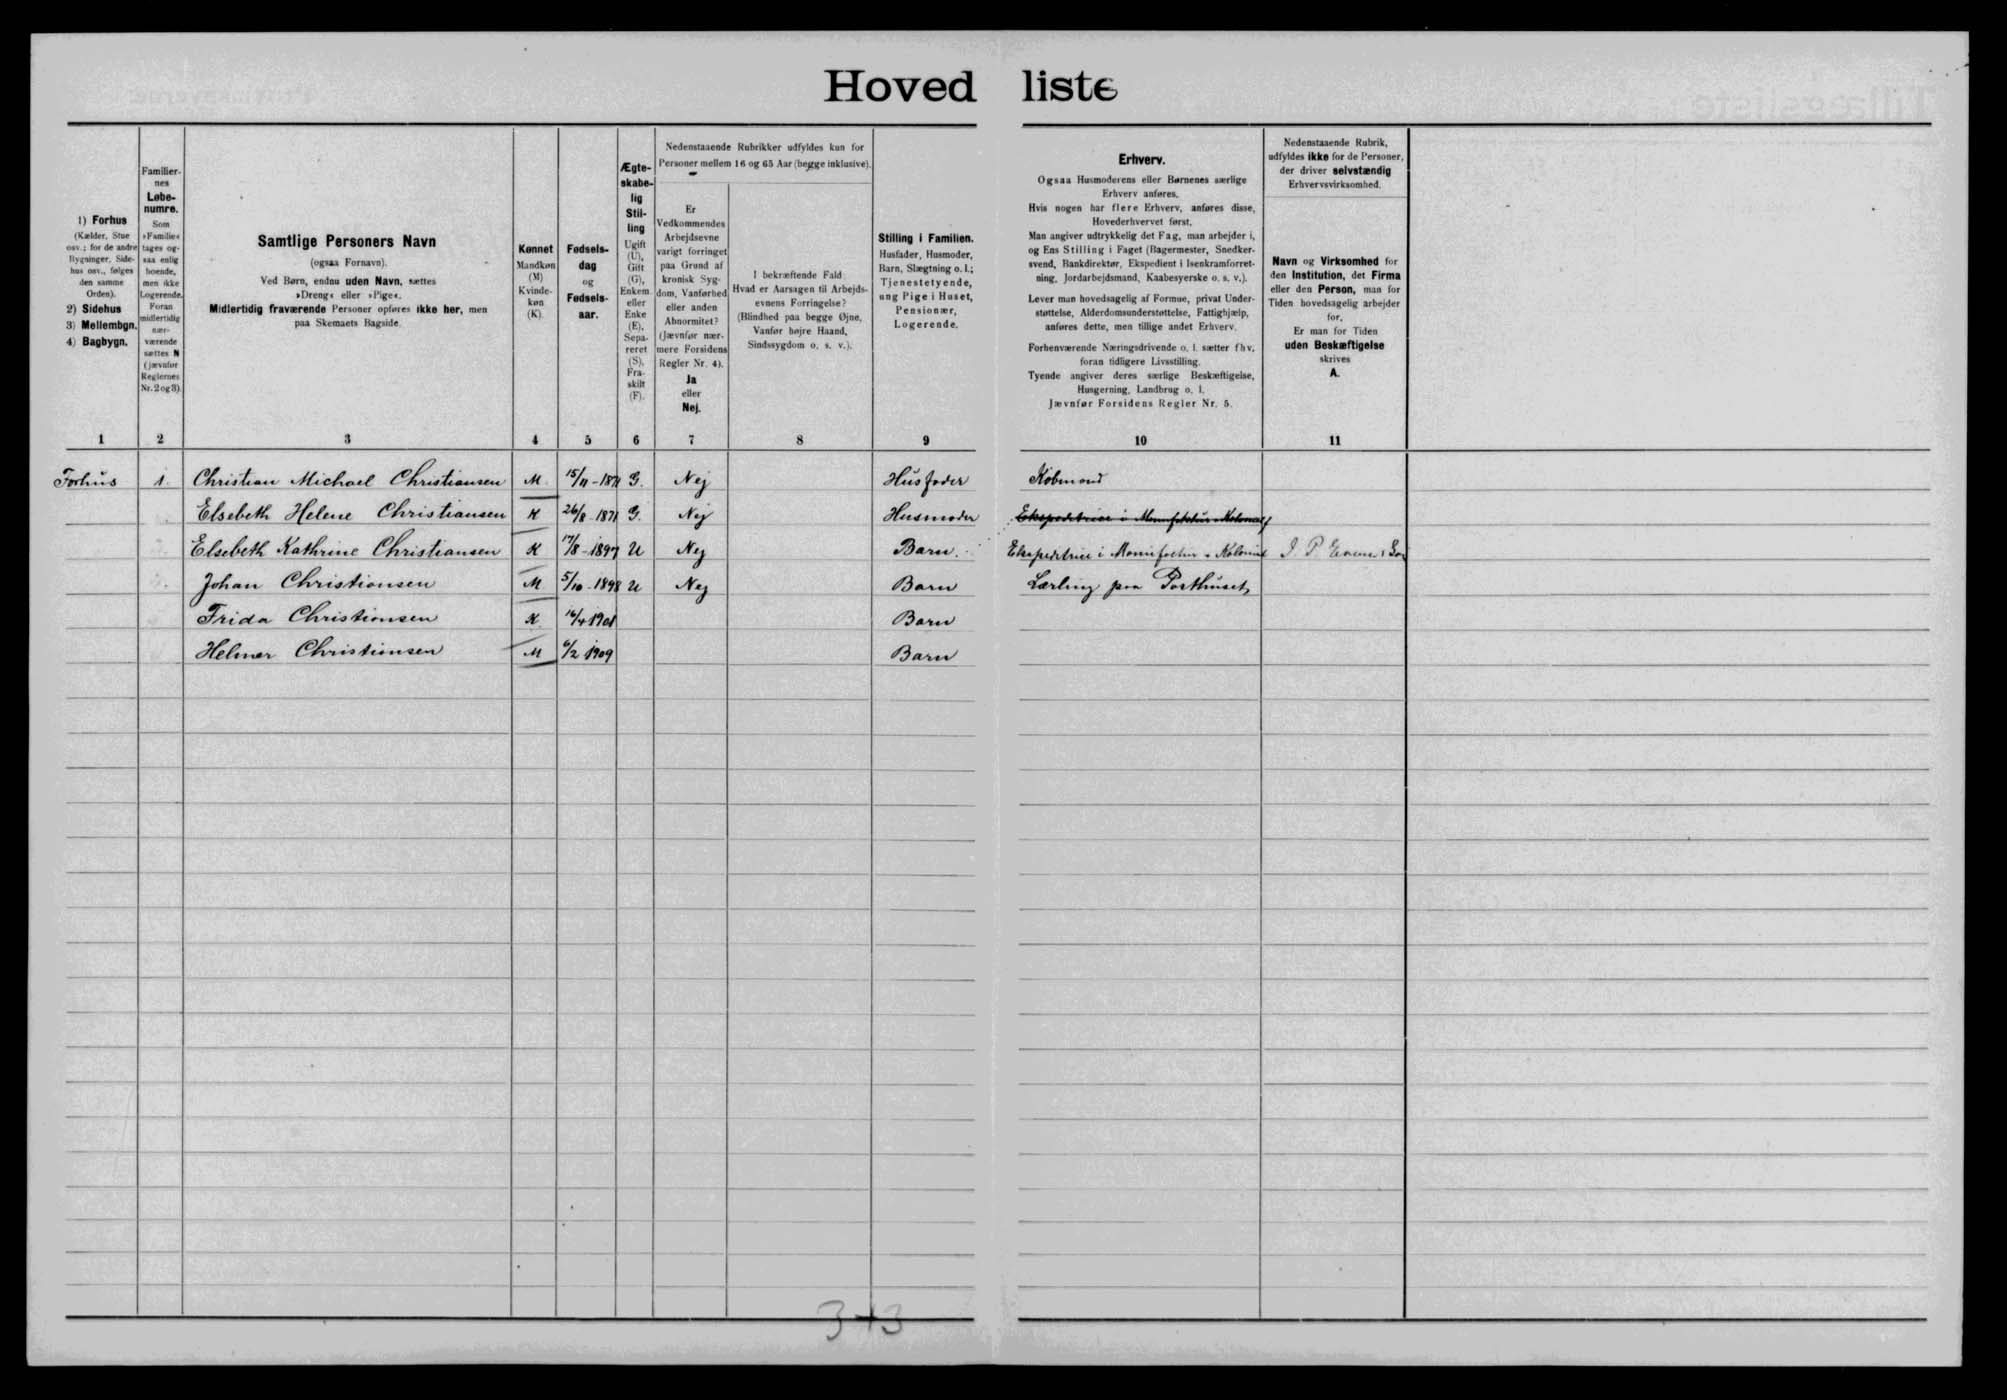 Hovedliste
1) Forhus
(Kælder, Stue
osv.; for de andre
Bygninger, Side-
hus osv., følges
den samme
Orden).
2) Sidehus
3) Mellembgn.
4) Bagbygn.
1
Familier-
nes
Løbe-
numre.
Som
»Familie«
tages og-
saa enlig
boende,
men ikke
Logerende.
Foran
midlertidig
nær-
værende
sættes N
(jævnfør
Reglernes
Nr. 2 og 3).
2
Samtlige Personers Navn
(ogsaa Fornavn).
Ved Børn, endnu uden Navn, sættes
»Dreng« eller »Pige«.
Midlertidig fraværende Personer opføres ikke her, men
paa Skemaets Bagside.
3
Kønnet
Mandkøn
(M)
Kvinde-
køn
(K).
4
Fødsels-
dag
og
Fødsels-
aar.
5
Ægte-
skabe-
lig
Stil-
ling
Ugift
(U),
Gift
(G),
Enkem.
eller
Enke
(E),
Sepa-
reret
(S),
Fra-
skilt
(F).
6
Nedenstaaende Rubrikker udfyldes kun for
Personer mellem 16 og 65 Aar (begge inklusive).
Er
Vedkommendes
Arbejdsevne
varigt forringet
paa Grund af
kronisk Syg-
dom, Vanførhed
eller anden
Abnormitet?
(Jævnfør nær-
mere Forsidens
Regler Nr. 4).
Ja
eller
Nej.
7
I bekræftende Fald:
Hvad er Aarsagen til Arbejds-
evnens Forringelse?
(Blindhed paa begge Øjne,
Vanfør højre Haand,
Sindssygdom o. s. v.).
8
Stilling i Familien.
Husfader, Husmoder,
Barn, Slægtning o. l.;
Tjenestetyende,
ung Pige i Huset,
Pensionær,
Logerende.
9
Erhverv.
Ogsaa Husmoderens eller Børnenes særlige
Erhverv anføres.
Hvis nogen har flere Erhverv, anføres disse,
Hovederhvervet først.
Man angiver udtrykkelig det Fag, man arbejder i,
og Ens Stilling i Faget (Bagermester, Snedker-
svend, Bankdirektør, Ekspedient i Isenkramforret-
ning, Jordarbejdsmand, Kaabesyerske o. s. v.).
Lever man hovedsagelig af Formue, privat Under-
støttelse, Alderdomsunderstøttelse, Fattighjælp,
anføres dette, men tillige andet Erhverv.
Forhenværende Næringsdrivende o. l. sætter fhv.
foran tidligere Livsstilling.
Tyende angiver deres særlige Beskæftigelse,
Husgerning, Landbrug o. l.
Jævnfør Forsidens Regler Nr. 5.
10
Nedenstaaende Rubrik,
udfyldes ikke for de Personer,
der driver selvstændig
Erhvervsvirksomhed.
Navn og Virksomhed for
den Institution, det Firma
eller den Person, man for
Tiden hovedsagelig arbejder
for.
Er man for Tiden
uden Beskæftigelse
skrives
A.
11
Forhus 1. Christian Michael Christiansen M. 15/11-1871 G. Nej Husfader Købmand
Elsebeth Helene Christiansen K 26/8-1871 G. Nej Husmoder Ekspeditrice i Manufaktur Kolonial
Elsebeth Kathrine Christiansen K 17/8-1897 U Nej Barn Ekspeditrice i Manufactur Kolonial I. P.
Johan Christiansen M 5/10-1898 U Nej Barn Lærling paa Posthuset
Frida Christiansen K 16/4 1901 Barn
Helmer Christiansen M 6/2 1909 Barn
3+3